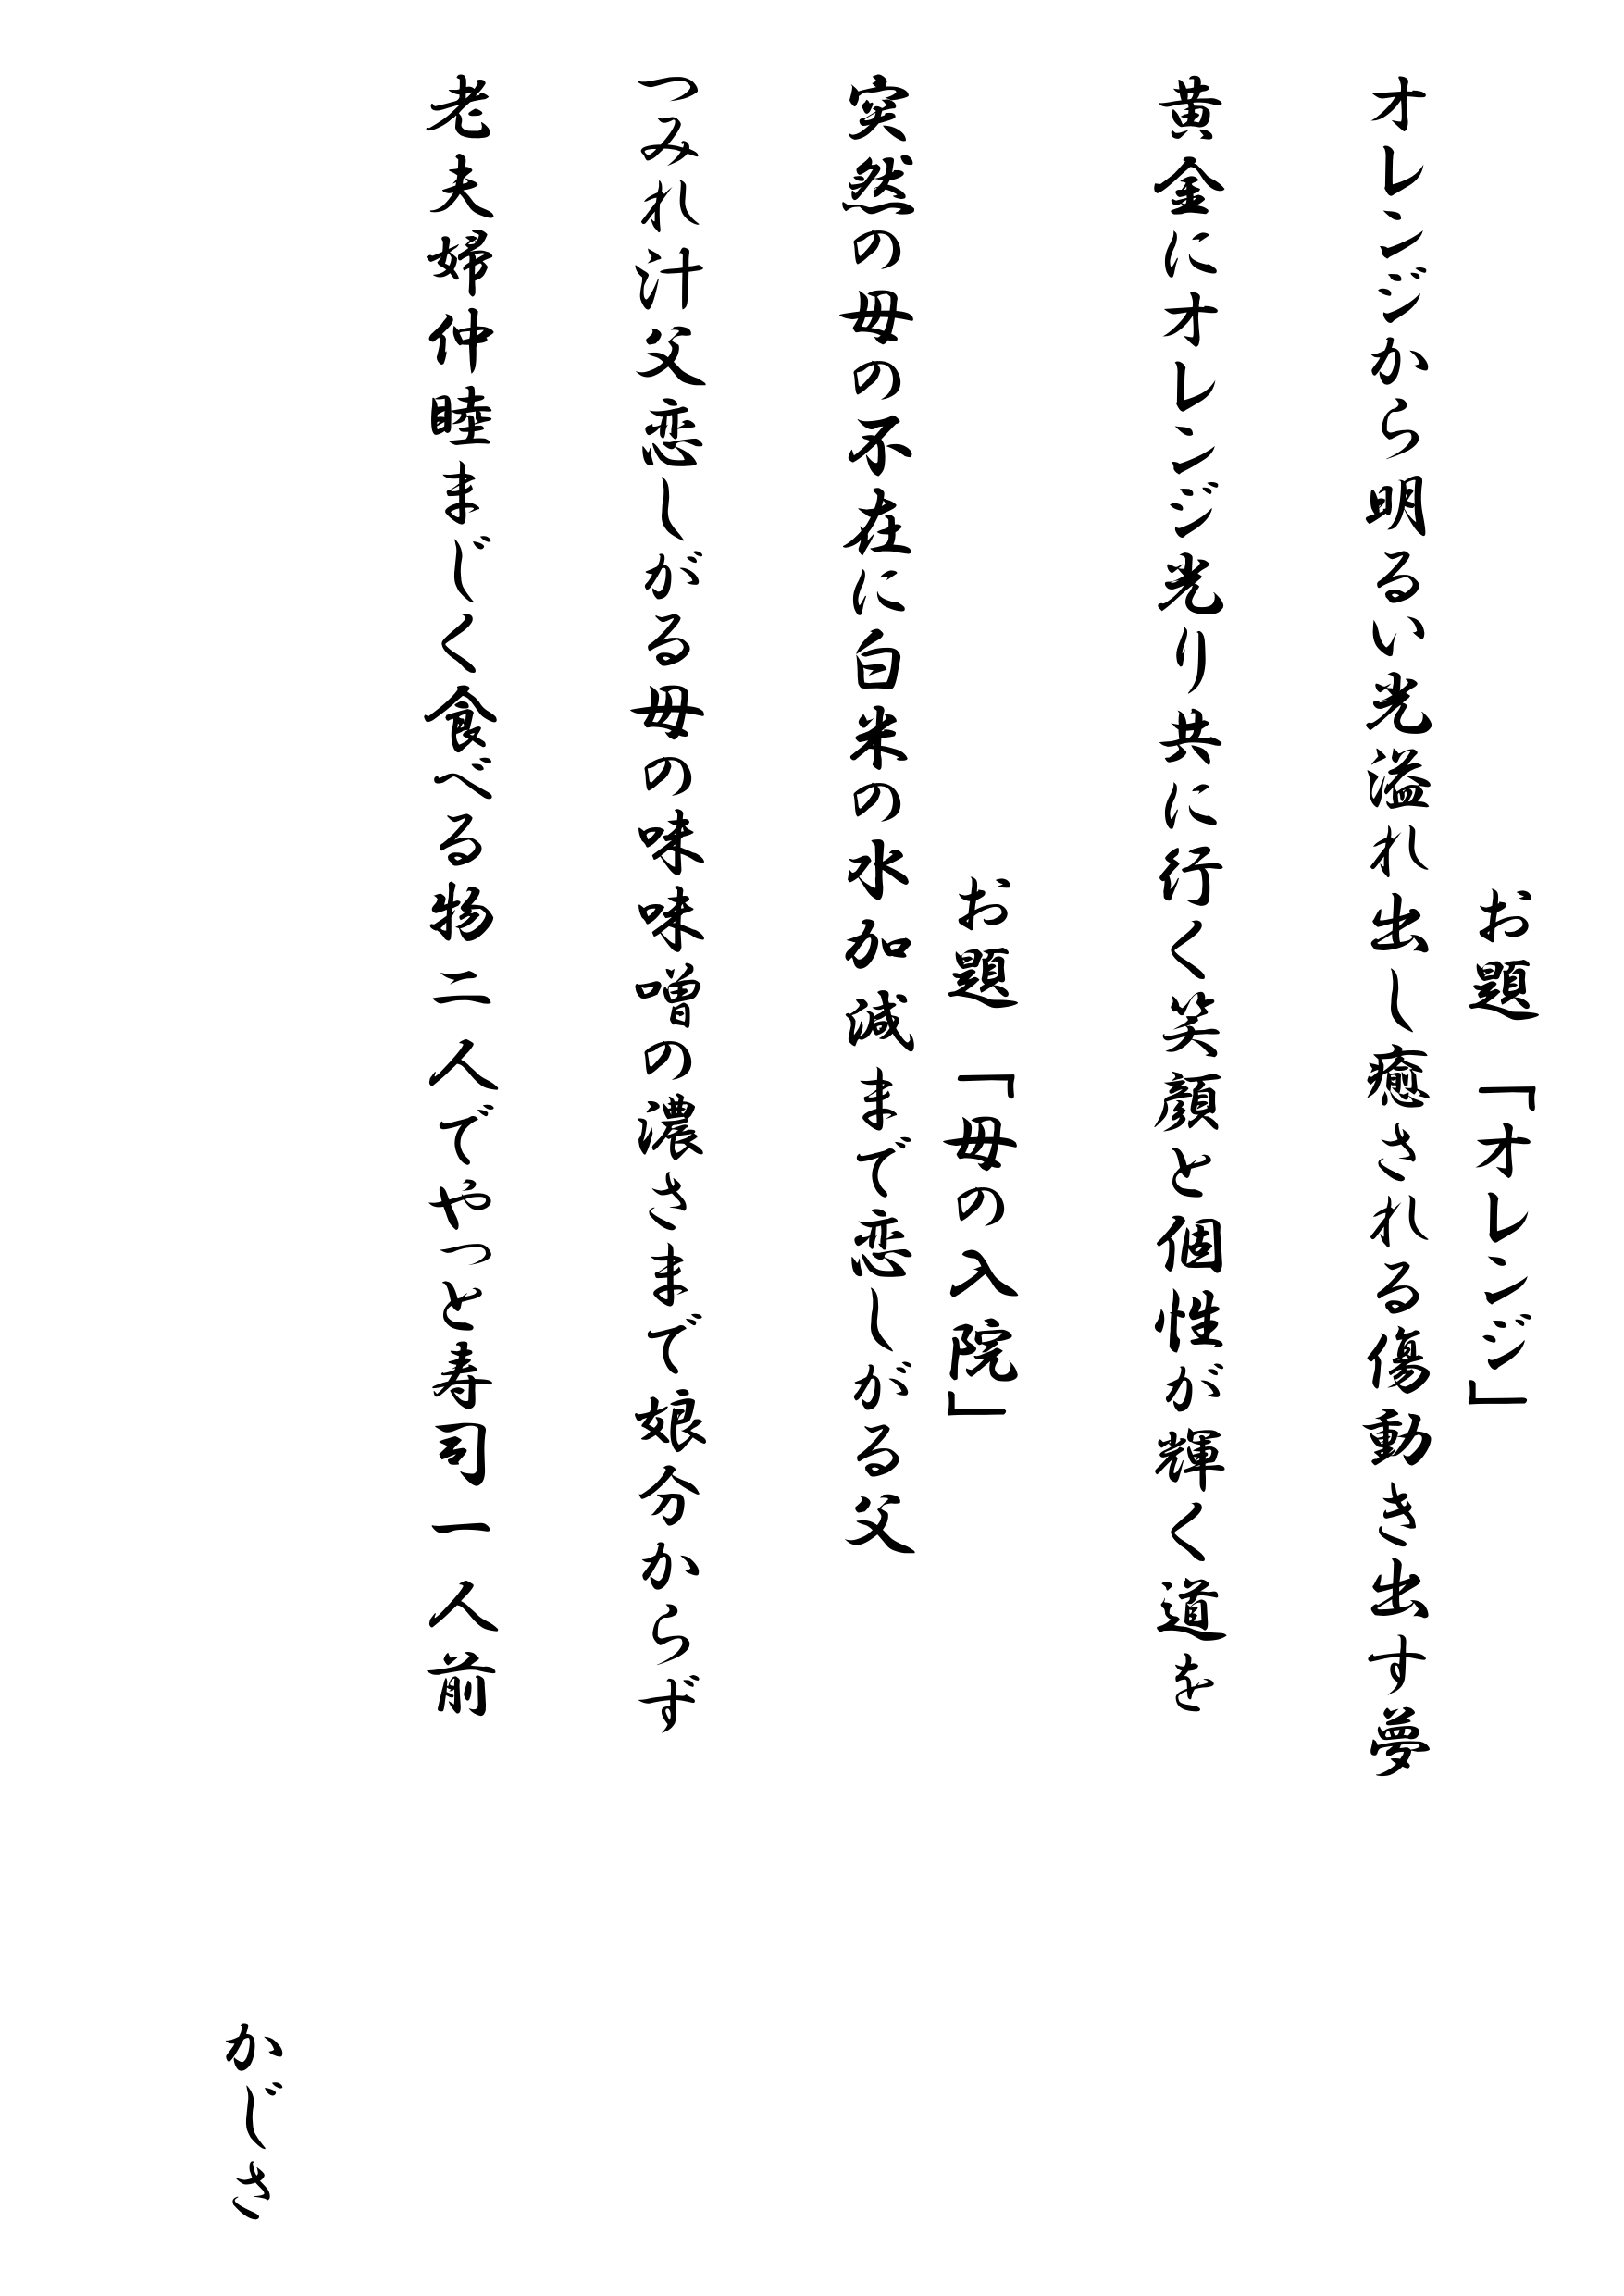 お題　「オレンジ」
オレンジから明るい光溢れ出し癒される傷動き出す夢
黄金にオレンジ光り共に行く笑顔と個性が輝く道を
お題　「母の入院」
突然の母の不在に白米の水加減まで恋しがる父
つみれ汁父恋しがる母の味味噌の濃さまで娘分からず
老夫婦仲睦まじく食べる物二人でやっと寿司一人前
かじさ